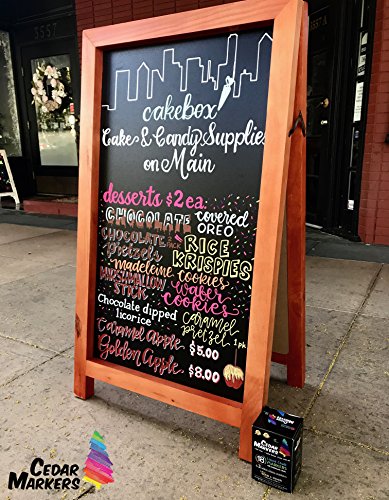 3557
cakebox
Cake & Candy Supplies
on Main
desserts $2 ea:
CHOCOLATE covered
OREO
CHOCOLATE
Pretzels
RICE
KRISPIES
madeleine cookies
MARSHMALLOW
STICK
wafer
cookies
Chocolate dipped
licorice
caramel
pretzel 1pk
Caramel Apple $5.00
Golden Apple $8.00
CEDAR
MARKERS
CEDAR
MARKERS